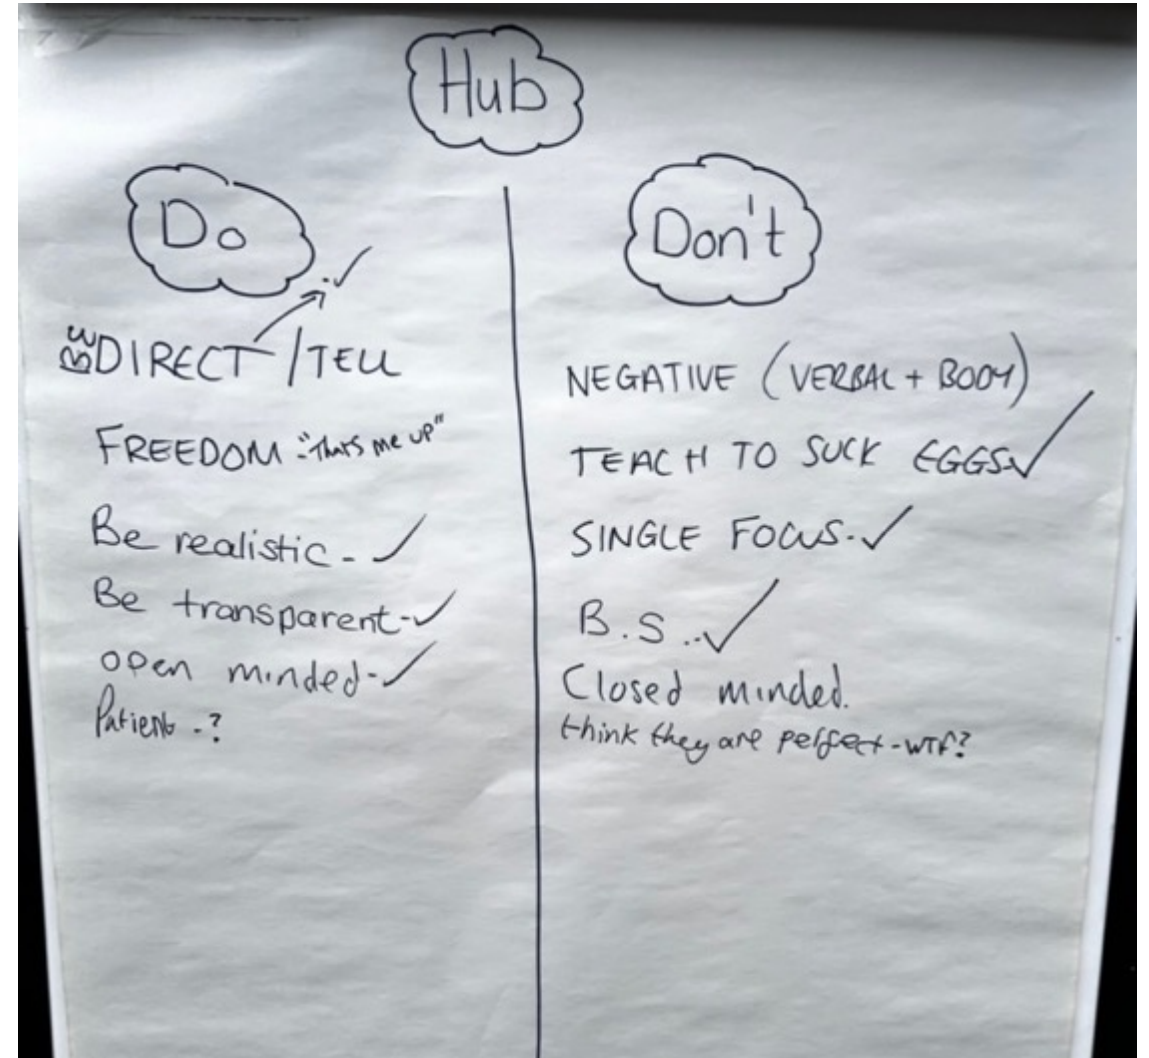 Hub
Do
✓
BE DIRECT / TELL
FREEDOM - "Thats me up"
Be realistic - ✓
Be transparent - ✓
open minded - ✓
Patient - ?
Don't
NEGATIVE (VERBAL + BODY)
TEACH TO SUCK EGGS ✓
SINGLE FOCUS. ✓
B.S .. ✓
Closed minded.
think they are perfect - WTF?